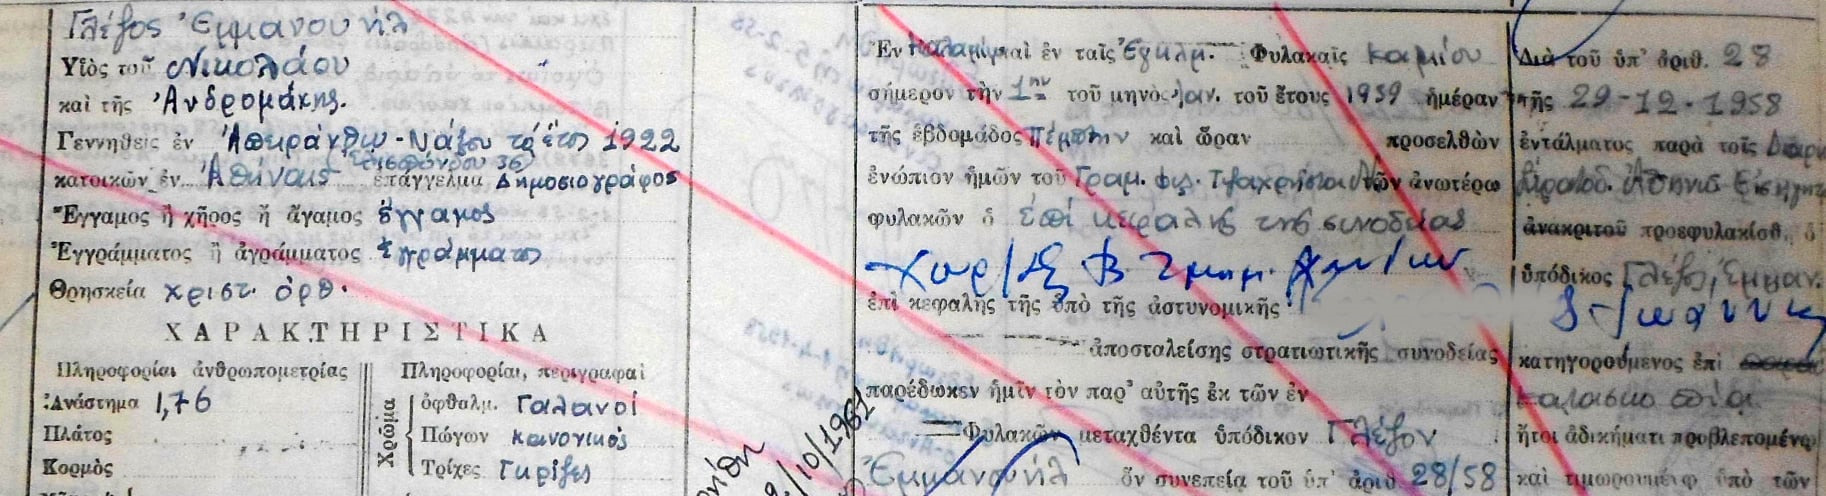 Γλέζος Ἐμμανουήλ
Υἱὸς τοῦ Νικολάου
καὶ τῆς Ἀνδρομάκης.
Γεννηθεὶς ἐν Ἀπεράνθω - Νάξου τὸ ἔτος 1922
κατοικῶν ἐν Ἀθήναις 36) ἐπάγγελμα Δημοσιογράφος
Ἔγγαμος ἢ χῆρος ἢ ἄγαμος ἔγγαμος
Ἐγγράμματος ἢ ἀγράμματος ἐγγράμματος
Θρησκεία χριστ. ὀρθ.
ΧΑΡΑΚΤΗΡΙΣΤΙΚΑ
Πληροφορίαι ἀνθρωπομετρίας
Ἀνάστημα 1,76
Πλάτος
Κορμὸς
Πληροφορίαι, περιγραφαὶ
Χρῶμα
ὀφθαλμ. Γαλανοί
Πώγων κανονικὸς
Τρίχες Γκρίζες
10/1961
Ἐν καὶ ἐν ταῖς Ἐγκλημ. Φυλακαῖς
σήμερον τὴν 1ην τοῦ μηνὸς Ἰαν. τοῦ ἔτους 1959 ἡμέραν
τῆς ἑβδομάδος Πέμπτην καὶ ὥραν προσελθὼν
ἐνώπιον ἡμῶν τοῦ Γραμ. φυλ. τῶν ἀνωτέρω
φυλακῶν ὁ ἐπὶ κεφαλῆς τῆς συνοδείας
ἐπὶ κεφαλῆς τῆς ὑπὸ τῆς ἀστυνομικῆς
ἀποσταλείσης στρατιωτικῆς συνοδείας
παρέδωκεν ἡμῖν τὸν παρ' αὐτῆς ἐκ τῶν ἐν
Φυλακῶν μεταχθέντα ὑπόδικον Γλέζον
Ἐμμανουήλ ὃν συνεπείᾳ τοῦ ὑπ' ἀριθ 28/58
Διὰ τοῦ ὑπ' ἀριθ. 28
τῆς 29-12-1958
ἐντάλματος παρὰ τοῖς
Ἀθηνῶν
ἀνακριτοῦ προεφυλακίσθ. ὁ
ὑπόδικος Γλέζος Ἐμμαν.
κατηγορούμενος ἐπὶ
ἤτοι ἀδικήματι προβλεπομένῳ
καὶ τιμωρουμένῳ ὑπὸ τῶν